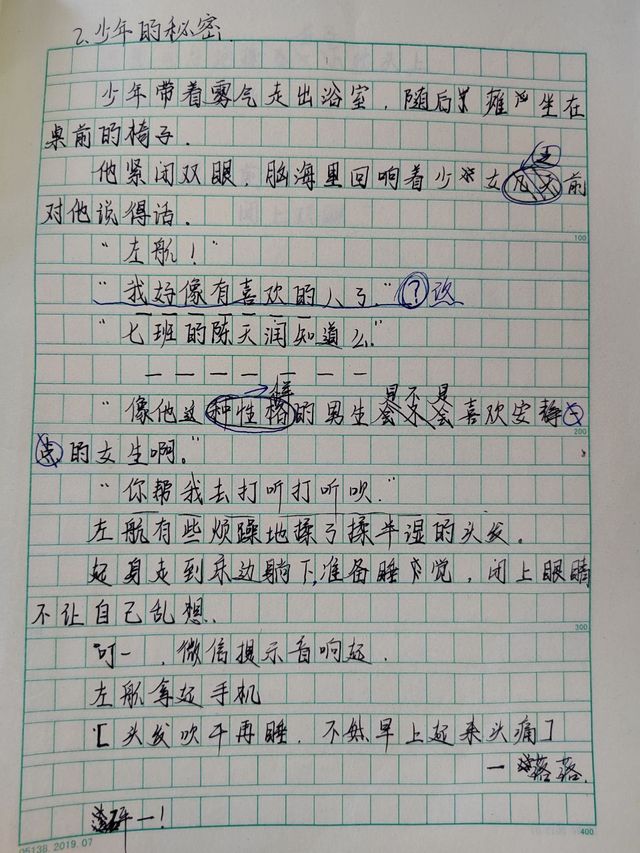 2.少年的秘密.
少年带着雾气走出浴室,随后瘫坐在
桌前的椅子.
他紧闭双眼,脑海里回响着少女几天前
对他说得话.
"左航!"
"我好像有喜欢的人了."?改
"七班的陈天润知道么"
样 是不是
"像他这种性格的男生会不会喜欢安静点
点的女生啊。"
"你帮我去打听打听呗."
左航有些烦躁地揉了揉半湿的头发。
起身走到床边躺下,准备睡觉,闭上眼睛
不让自己乱想.
叮一,微信提示音响起.
左航拿起手机
[头发吹干再睡,不然早上起来头痛]
一落落.
一!
05138 2019.07
100
200
300
400